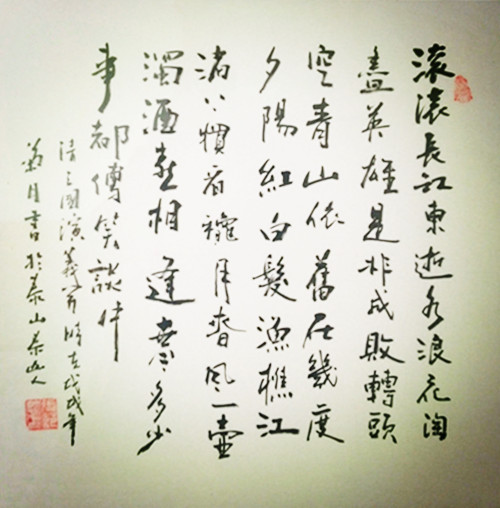 滚滚長江東逝水浪花淘
盡英雄是非成敗轉頭
空青山依舊在幾度
夕陽紅白髮漁樵江
渚上慣看穐月春風一壺
濁酒喜相逢古今多少
事都傅笑談中
三國演義時在戊戌年
菊月書於泰山